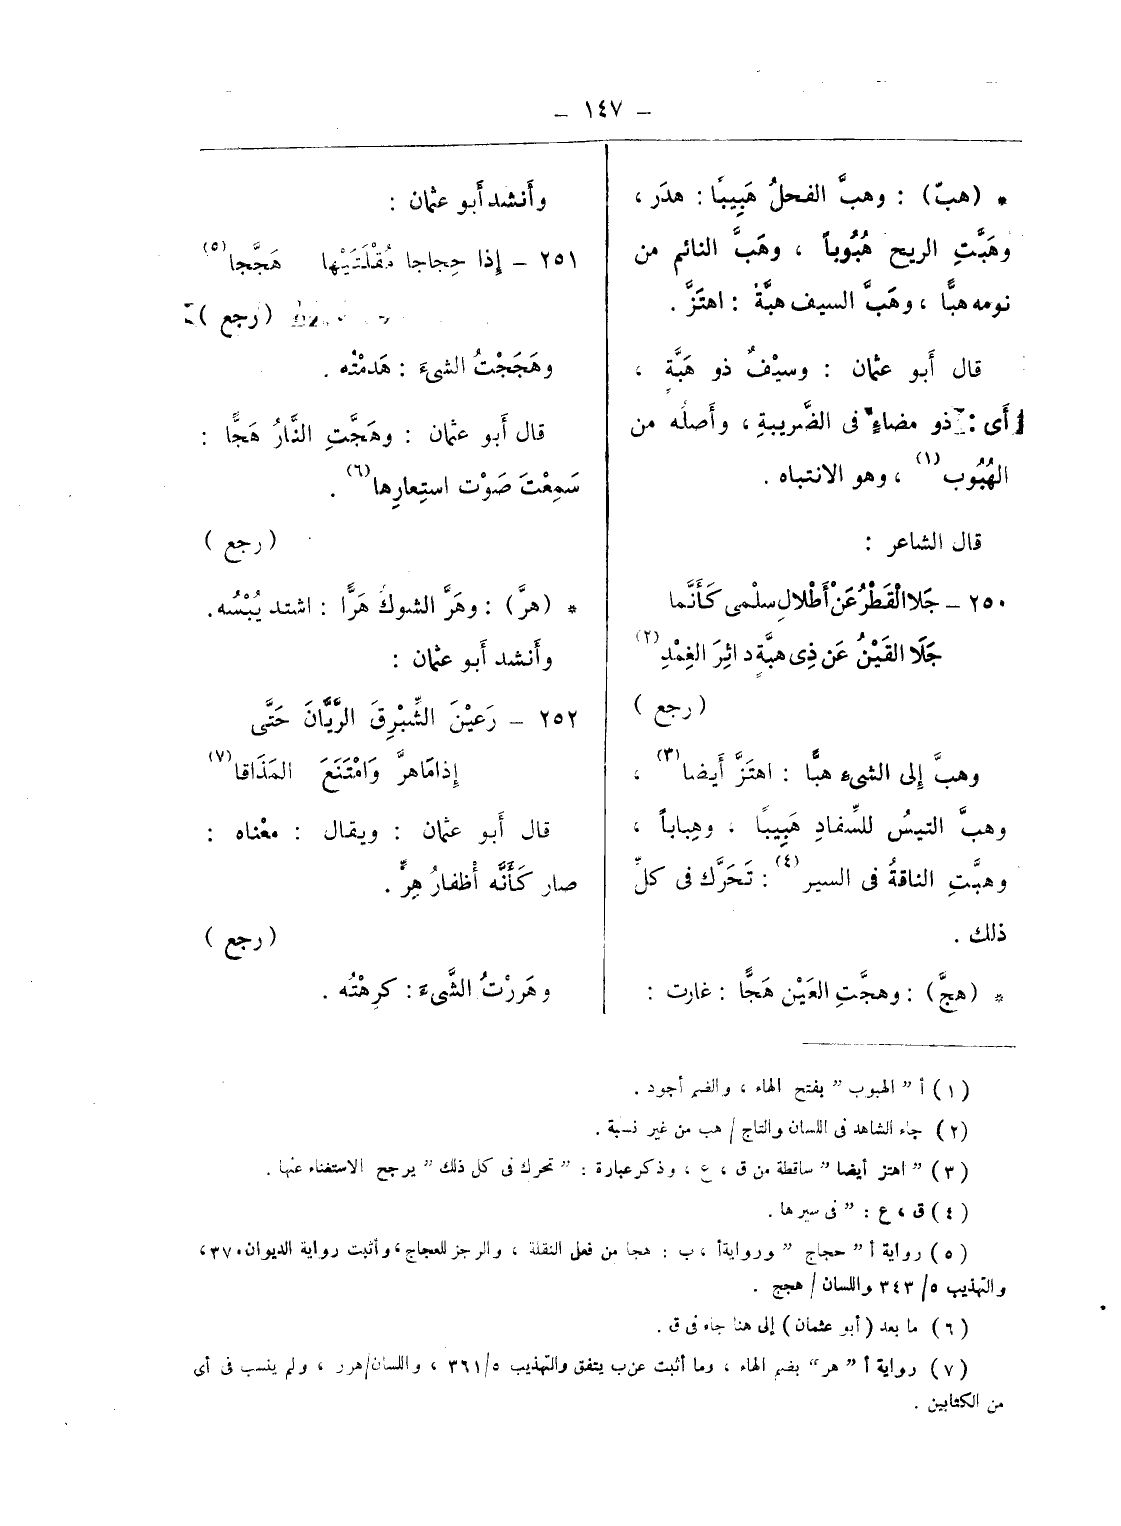 – ١٤٧ –
* (هبّ) : وهبَّ الفحلُ هَبِيبًا : هدَر ،
وهَبَّتِ الريح هُبُوباً ، وهَبَّ النائم من
نومه هبًّا ، وهَبَّ السيف هبَّةً : اهتَزَّ .
قال أَبو عثمان : وسيْفٌ ذو هَبَّةٍ ،
أَى : ذو مضاءٍ فى الضَّريبةِ ، وأَصلُه من
الهُبُوب (١) ، وهو الانتباه .
قال الشاعر :
٢٥٠ – جَلَا القَطْرُ عَنْ أَطْلالِ سلْمى كَأَنَّما
جَلَا القَيْنُ عَن ذِى هبَّةٍ داثِرَ الغِمْدِ (٢)
( رجع )
وهبَّ إِلى الشىء هبًّا : اهتَزَّ أَيضا (٣) ،
وهبَّ التيسُ للسِّفادِ هَبِيبًا ، وهِباباً ،
وهبَّتِ الناقةُ فى السير (٤) : تَحَرَّك فى كلِّ
ذلك .
* (هجَّ) : وهجَّتِ العَيْن هَجًّا : غارت :
وأَنشد أَبو عثمان :
٢٥١ – إِذا حِجاجا مُقْلَتَيْها هَجَّجا (٥)
( رجع )
وهَجَجْتُ الشىءَ : هَدمْتُه .
قال أَبو عثمان : وهَجَّتِ النَّارُ هَجًّا :
سَمِعْتَ صَوْت استِعارِها (٦) .
( رجع )
* (هرَّ) : وهَرَّ الشوكُ هَرًّا : اشتد يُبْسُه.
وأَنشد أَبو عثمان :
٢٥٢ – رَعَيْنَ الشِّبْرِقَ الرَّيَّانَ حَتَّى
إِذا مَاهرَّ وَامْتَنَعَ المَذَاقا (٧)
قال أَبو عثمان : ويقال : معْناه :
صار كَأَنَّه أَظفارُ هِرٍّ .
( رجع )
وهَررْتُ الشَّىءَ : كرِهْتُه .
(١) أ ” الهبوب ” بفتح الهاء ، والضم أجود .
(٢) جاء الشاهد فى اللسان والتاج / هب من غير نسبة .
(٣) ” اهتز أيضا ” ساقطة من ق ، ع ، وذكر عبارة : ” تحرك فى كل ذلك ” يرجح الاستغناء عنها .
(٤) ق ، ع : ” فى سيرها .
(٥) رواية أ ” حجاج ” ورواية أ ، ب : هجا من فعل النقلة ، والرجز للعجاج ، وأثبت رواية الديوان ٣٧٠ ،
والتهذيب ٥ / ٣٤٣ واللسان / هجج .
(٦) ما بعد (أبو عثمان) إلى هنا جاء فى ق .
(٧) رواية أ ” هر ” بضم الهاء ، وما أثبت عن ب يتفق والتهذيب ٥/ ٣٦١ ، واللسان/هرر ، ولم ينسب فى أى
من الكتابين .